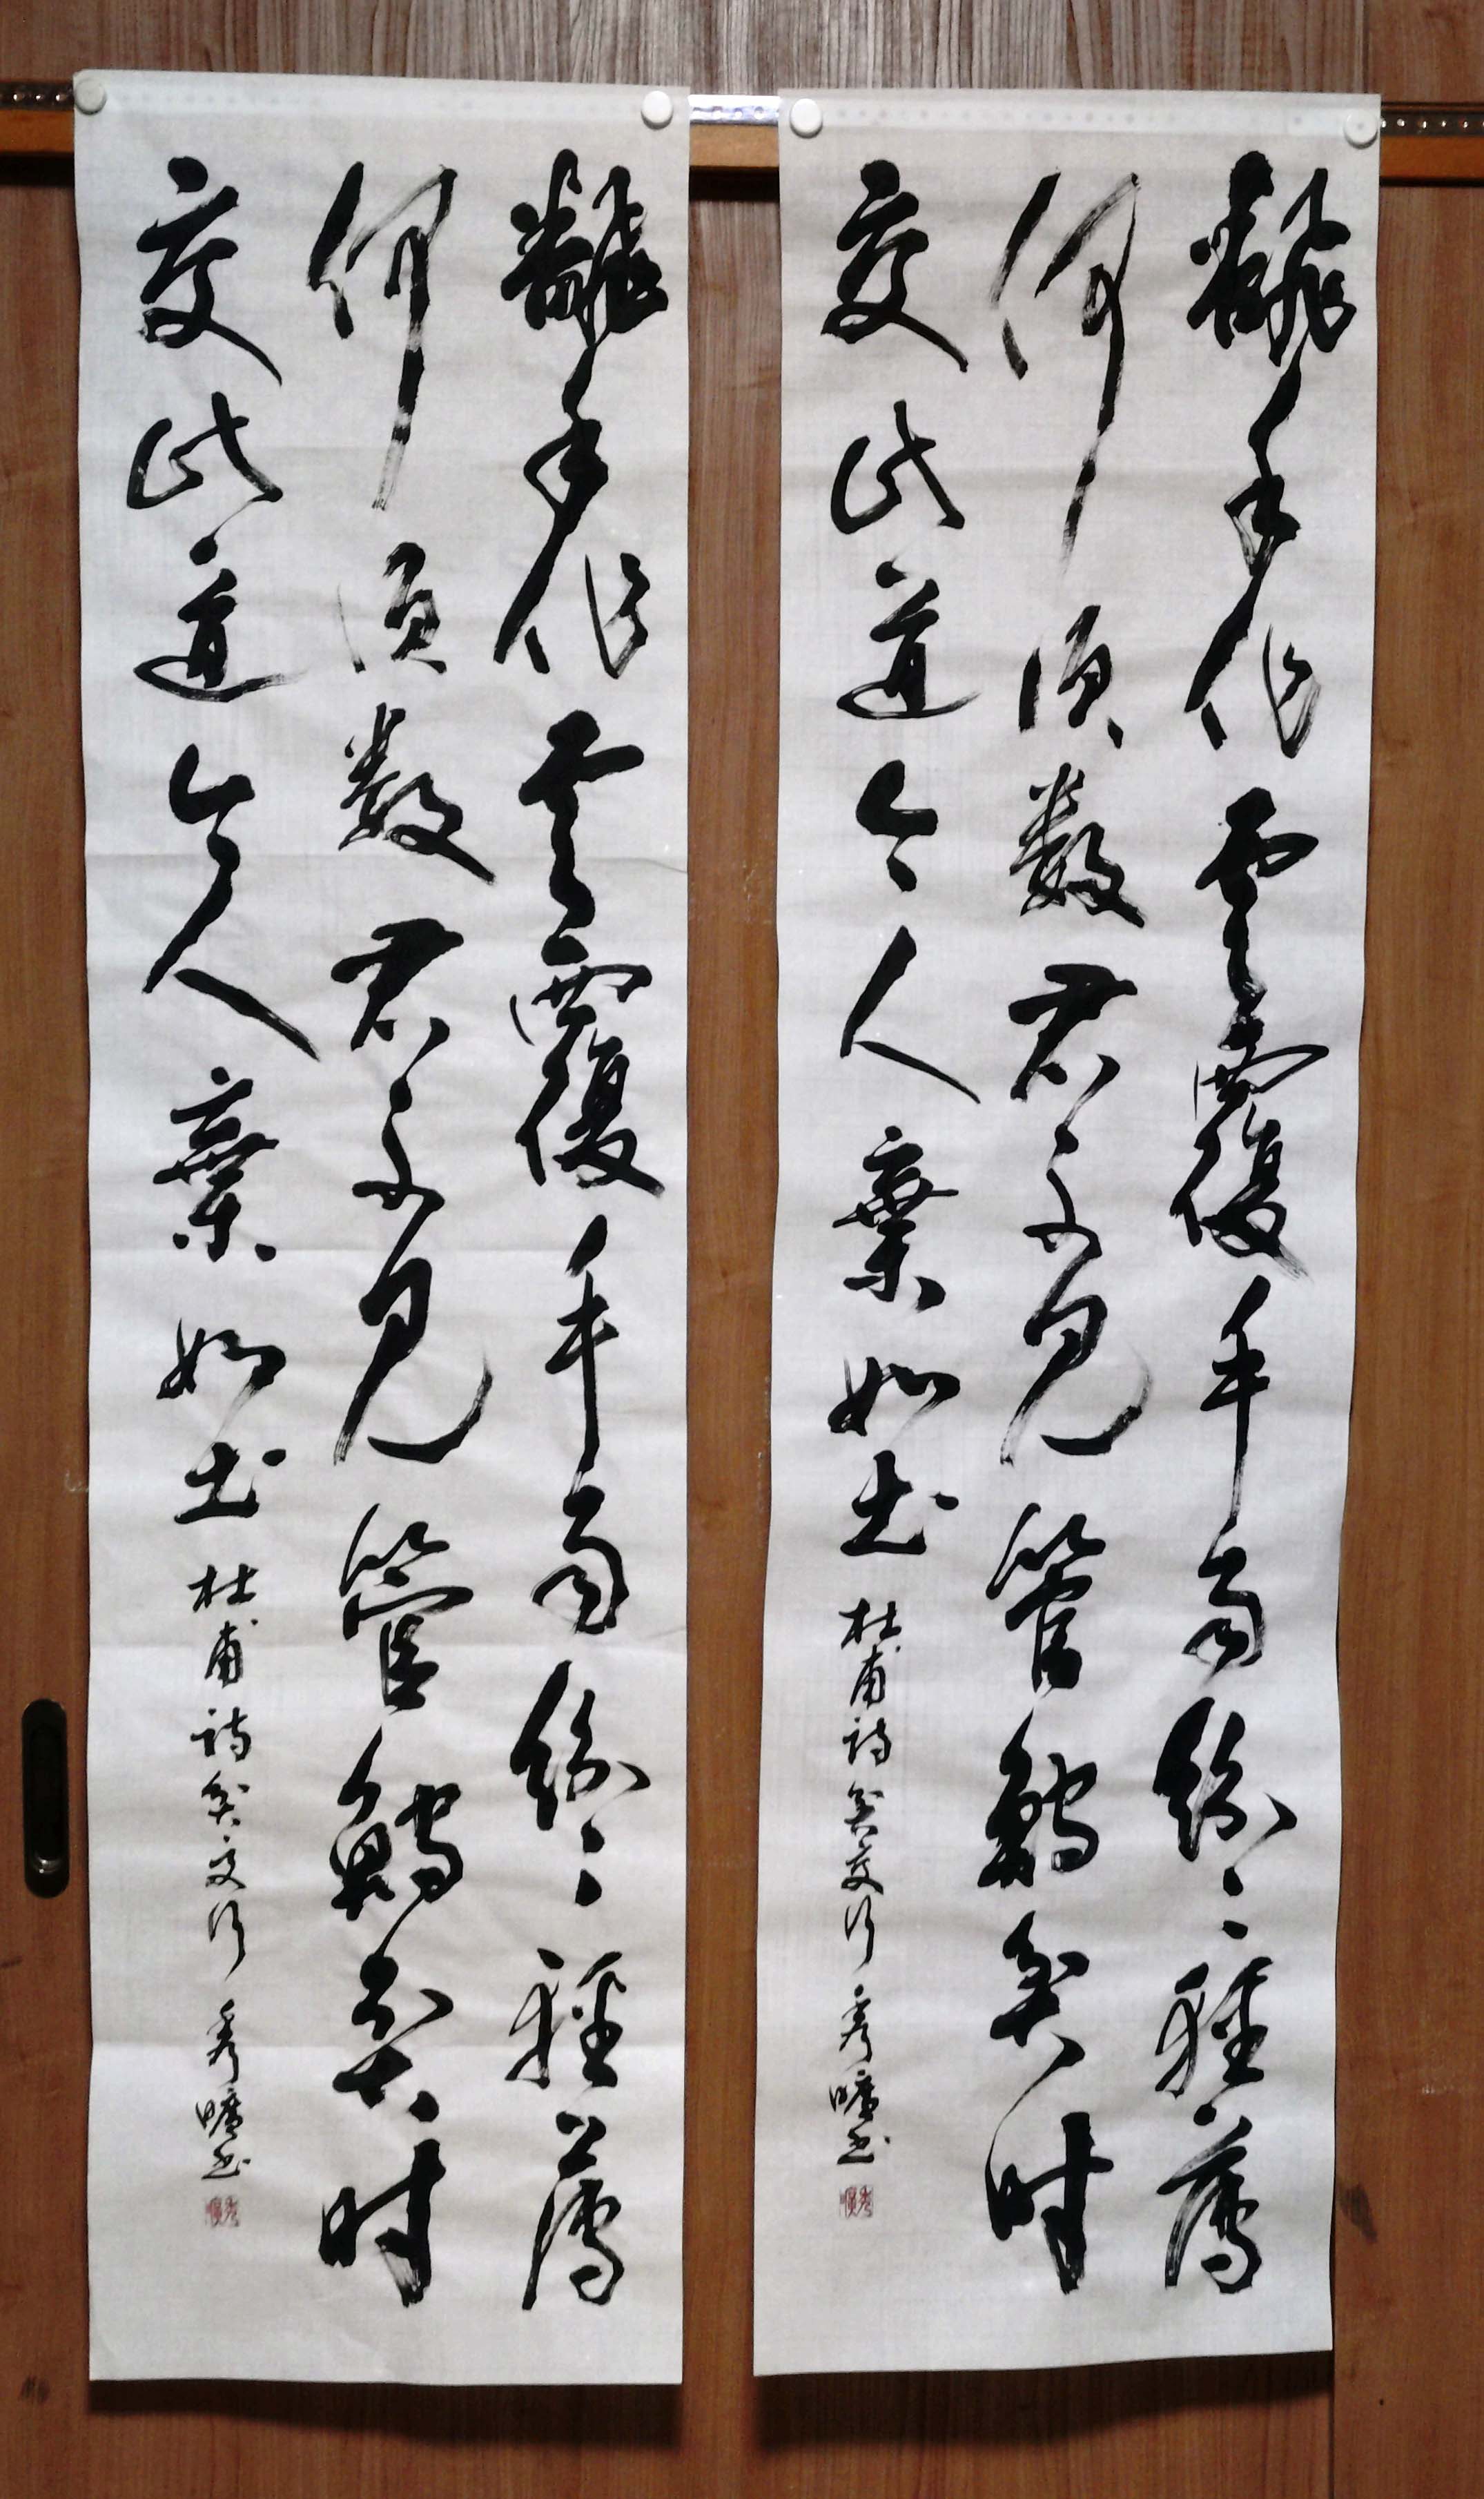 飜手作雲覆手雨紛々軽薄
何須数君不見管鮑貧時
交此道今人棄如土 杜甫詩貧交行 秀曠書
飜手作雲覆手雨紛々軽薄
何須数君不見管鮑貧時
交此道今人棄如土 杜甫詩貧交行 秀曠書